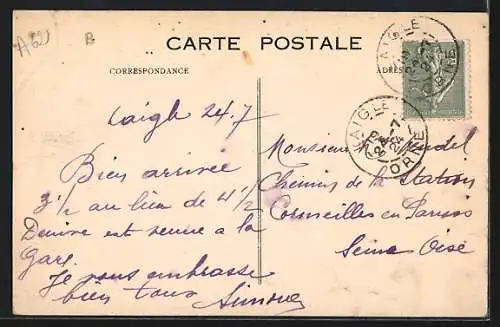 A620
B
CARTE POSTALE
CORRESPONDANCE
ADRES
LAIGLE
ORNE
24-7
24
LAIGLE
ORNE
24-7
24
Laigle 24.7
Bien arrivée
3'1/2 au lieu de 4 1/2
Denise est venue a la
Gare.
Je vous embrasse
bien tous Simone
Monsieur
Chemin de la Station
Cormeilles en Parisis
Seine Oise